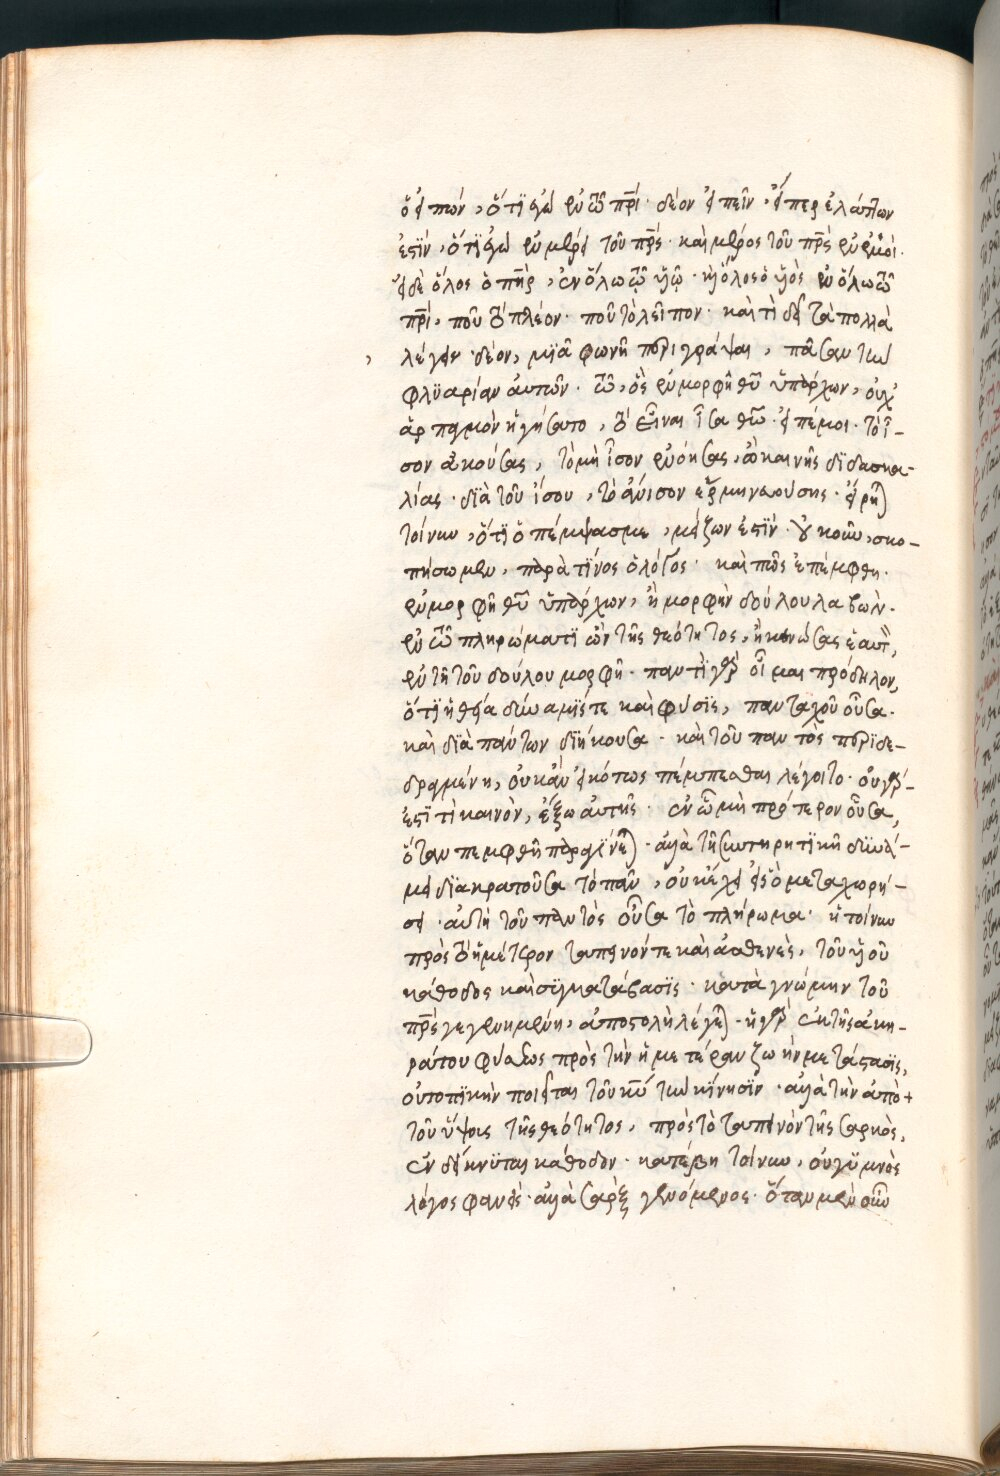 ὁ εἰπών, ὅτι ἐγὼ ἐν τῷ πρι· δέον εἰπεῖν, εἴπερ ἐλάττων
ἐστίν, ὅτι ἐγὼ ἐν μέρει τοῦ πρς· καὶ μέρος τοῦ πρς ἐν ἐμοί·
εἰ δὲ ὅλος ὁ πηρ, ἐν ὅλω τῷ ὑῷ· κὴ ὅλος ὁ ὑὸς ἐν ὅλω τῷ
πρι, ποῦ τὸ πλέον· ποῦ τὸ λεῖπον· καὶ τὶ δεῖ τὰ πολλὰ
λέγειν· δέον, μϊᾶ φωνῆ περιγράψαι, πᾶσαν τὴν
φλϋαρίαν ἀυτῶν· ὦ, ὃς ἐν μορφῆ θῦ ὑπάρχων, οὐχ
ἁρπαγμὸν ἡγήσατο, τὸ εἶναι ἶσα θῶ· εἰπέ μοι· τὸ ἶ-
σον ἀκούσας, τὸ μὴ ἶσον ἐνόησας, ὢ καινῆς δϊδασκα-
λίας· δϊὰ τοῦ ἴσου, τὸ ἄνισον ἑρμηνευούσης· εἴρηται
τοίνυν, ὅτι ὁ πέμψας με, μείζων ἐστίν· οὐκοῦν, σκο-
πήσωμεν, παρὰ τίνος ὁ λόγος· καὶ πῶς ἐπέμφθη·
ἐν μορφῆ θῦ ὑπάρχων, ἢ μορφὴν δούλου λαβών·
ἐν τῷ πληρώματι ὢν τῆς θεότητος, ἢ κενώσας ἑαυτὸν,
ἐν τῆ τοῦ δούλου μορφῆ· παντὶ γὰρ οἶμαι πρόδηλον,
ὅτι ἡ θεία δύναμίς τε καὶ φύσις, πανταχοῦ οὖσα·
καὶ δϊὰ πάντων δϊήκουσα· καὶ τοῦ παντὸς περϊδε-
δραγμένη, οὐκ ἂν εἰκότως πέμπεσθαι λέγοιτο· οὐ γάρ
ἐστϊ τὶ κενὸν, ἔξω ἀυτῆς· ἐν ὧ μὴ πρότερον οὖσα,
ὅταν πεμφθῆ παραγίνεται· ἀλλὰ τῆ συντηρητϊκῆ δϋνά-
μει δϊακρατοῦσα τὸ πᾶν, οὐκ ἔχει εἰς ὃ μεταχωρή-
σει· ἀυτὴ τοῦ παντὸς οὖσα τὸ πλήρωμα· ἡ τοίνυν
πρὸς τὸ ἡμέτερον ταπεινόν τε καὶ ἀσθενὲς, τοῦ ὑοῦ
κάθοδος καὶ συγκατάβασϊς· κατὰ γνώμην τοῦ
πρς γεγενημένη, ἀποστολὴ λέγεται· ἡ γὰρ ἐκ τῆς ἀκη-
ράτου φύσεως πρὸς τὴν ἡμετέραν ζωὴν μετάστασϊς,
οὐ τοπϊκὴν ποιεῖται τοῦ κῦ τὴν κίνησϊν· ἀλλὰ τὴν ἀπὸ
τοῦ ὕψους τῆς θεότητος, πρὸς τὸ ταπεινὸν τῆς σαρκὸς,
ἐνδείκνϋται κάθοδον· κατέβη τοίνυν, οὐ γϋμνὸς
λόγος φανεὶς· ἀλλὰ σὰρξ γενόμενος· ὅταν μὲν οὖν